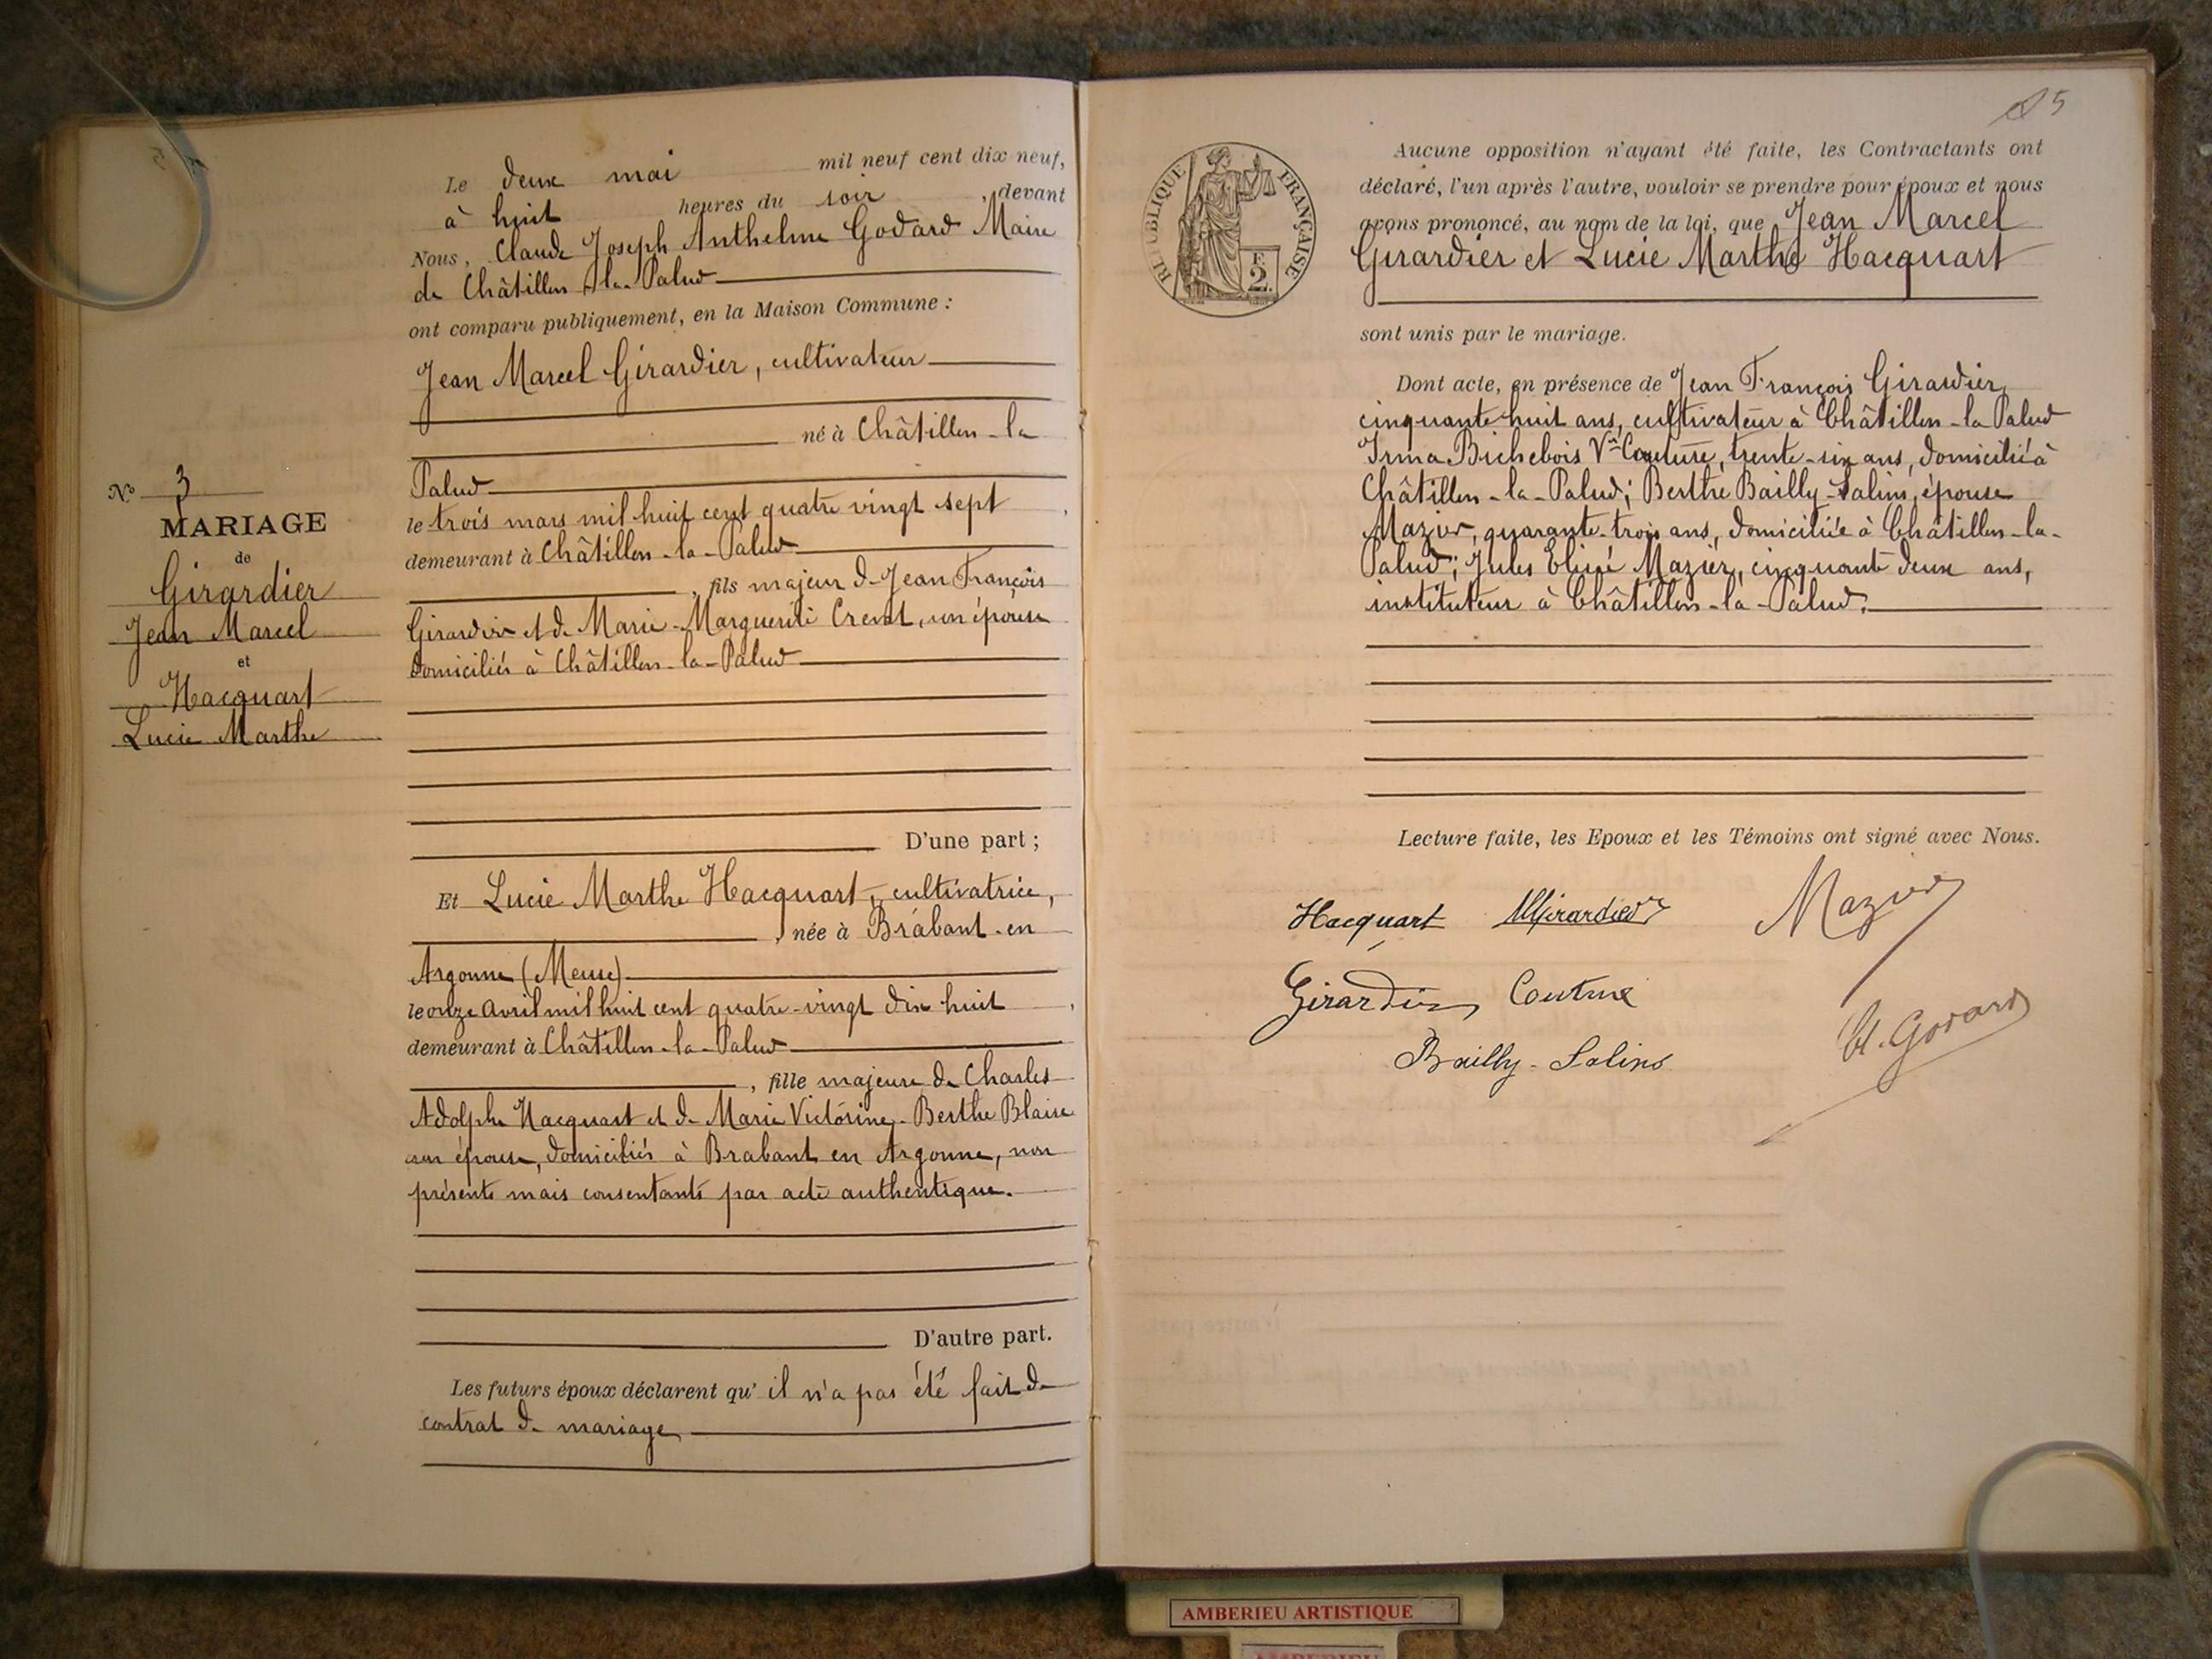 Le deux mai mil neuf cent dix-neuf,
à huit heures du soir, devant
Nous, Claude Joseph Anthelme Godard Maire
de Châtillon-la-Palud
ont comparu publiquement, en la Maison Commune :
Jean Marcel Girardier, cultivateur
né à Châtillon-la
Palud
le trois mars mil huit cent quatre vingt sept,
demeurant à Châtillon-la-Palud
, fils majeur de Jean François
Girardier et de Marie-Marguerite son épouse
domiciliés à Châtillon-la-Palud
D'une part ;
N° 3
MARIAGE
de
Girardier
Jean Marcel
et
Hacquart
Lucie Marthe
Et Lucie Marthe Hacquart, cultivatrice,
, née à Brabant-en
Argonne (Meuse)
le onze avril mil huit cent quatre-vingt dix huit,
demeurant à Châtillon-la-Palud
, fille majeure de Charles
Adolphe Hacquart et de Marie Victorine-Berthe Blaise
son épouse, domiciliés à Brabant en Argonne, non
présents mais consentants par acte authentique.
D'autre part.
Les futurs époux déclarent qu'il n'a pas été fait de
contrat de mariage
5
RÉPUBLIQUE FRANÇAISE
F.
2.
Aucune opposition n'ayant été faite, les Contractants ont
déclaré, l'un après l'autre, vouloir se prendre pour époux et nous
avons prononcé, au nom de la loi, que Jean Marcel
Girardier et Lucie Marthe Hacquart
sont unis par le mariage.
Dont acte, en présence de Jean François Girardier,
cinquante-huit ans, cultivateur à Châtillon-la-Palud
Irma Bichebois Vve Couture, trente-six ans, domicilié à
Châtillon-la-Palud; Berthe Bailly-Salins, épouse
Mazier, quarante-trois ans, domiciliée à Châtillon-la-
Palud; Jules Elisé Mazier, cinquante deux ans,
instituteur à Châtillon-la-Palud.
Lecture faite, les Epoux et les Témoins ont signé avec Nous.
Hacquart MGirardier Mazier
Girardier Couture
Cl. Godard
Bailly-Salins
AMBERIEU ARTISTIQUE
AMBERIEU